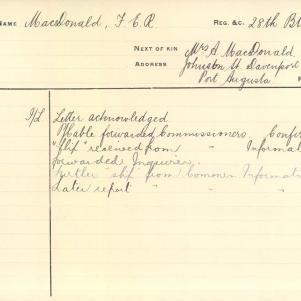 NAME MacDonald, F E R REG. &C. 28th B
NEXT OF KIN Mrs A. MacDonald
ADDRESS Johnson St Davenport
Port Augusta
Letter acknowledged
Cable forwarded Commissioners. Confir
"Slip" received from Informa
forwarded Inquirer.
Further "slip" from Common Informat
Later report " "